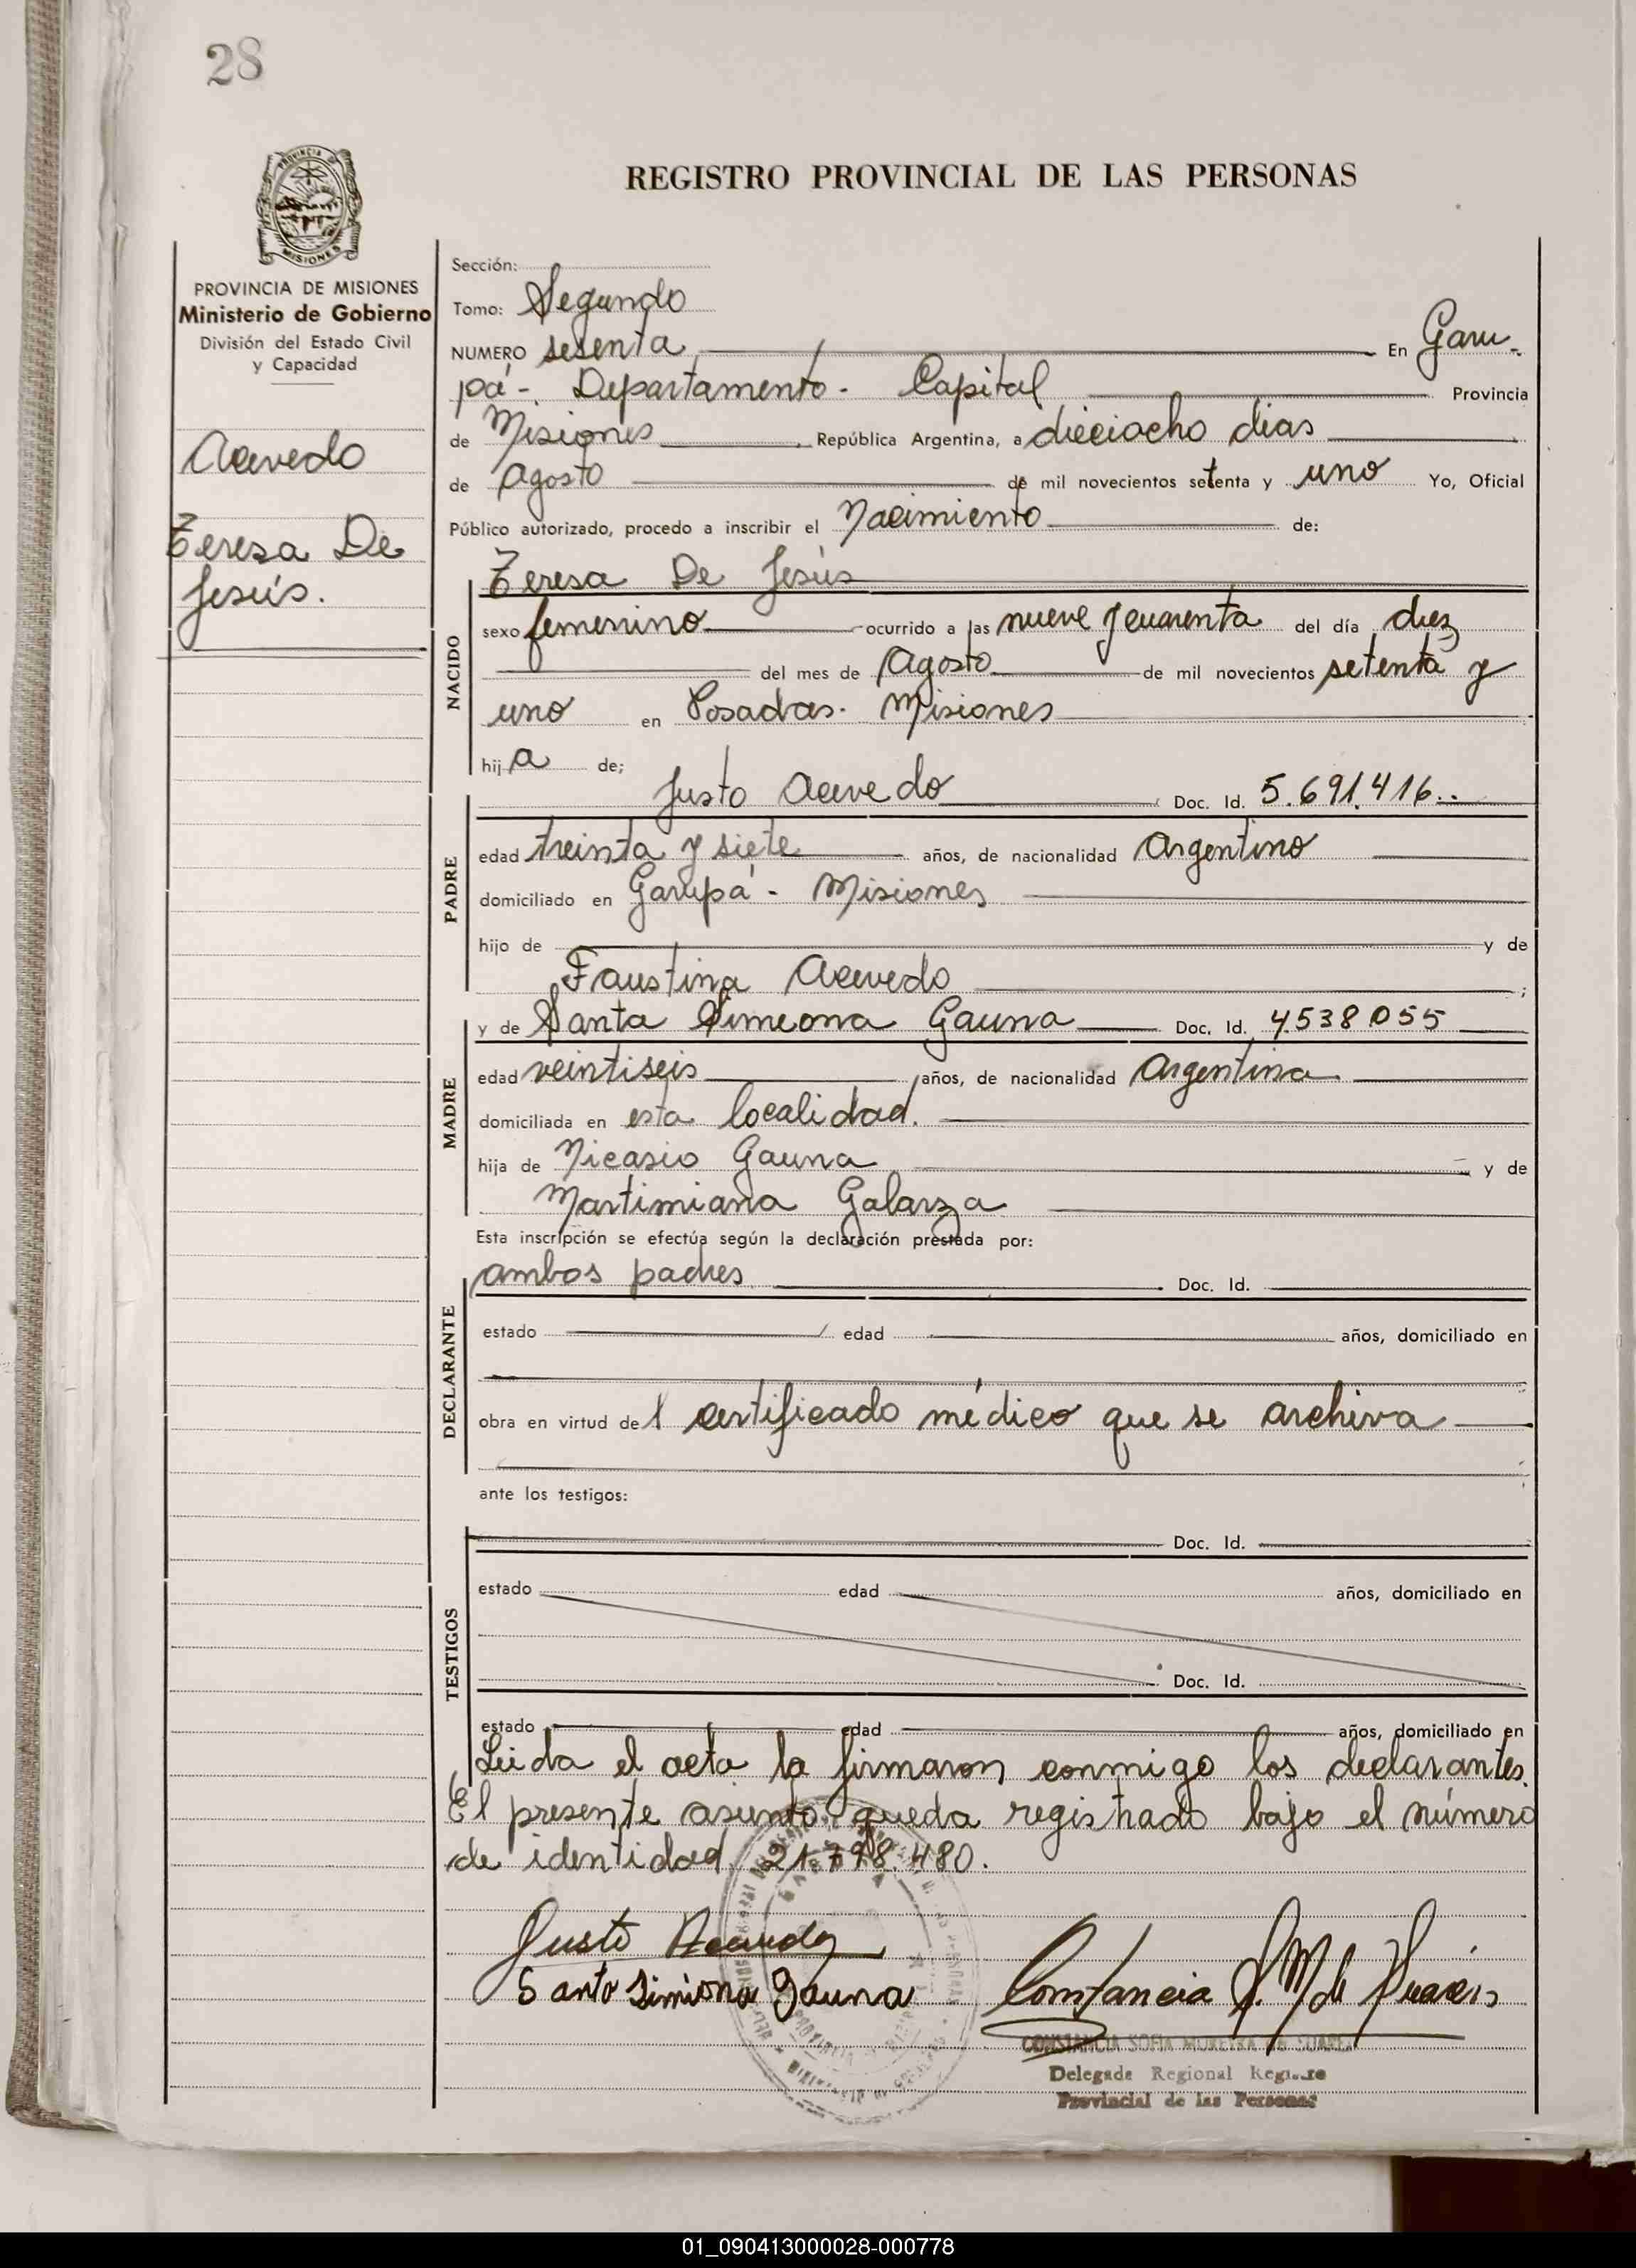 28
PROVINCIA DE
MISIONES
REGISTRO PROVINCIAL DE LAS PERSONAS
PROVINCIA DE MISIONES
Ministerio de Gobierno
División del Estado Civil
y Capacidad
Acevedo
Teresa De
Jesús.
Sección:
Tomo: Segundo
NUMERO sesenta En Garu-
pá-. Departamento- Capital Provincia
de Misiones República Argentina, a dieciocho dias
de Agosto de mil novecientos setenta y uno Yo, Oficial
Público autorizado, procedo a inscribir el Nacimiento de:
Teresa De Jesús
NACIDO
sexo femenino ocurrido a las nueve y cuarenta del día diez
del mes de Agosto de mil novecientos setenta y
uno en Posadas. Misiones
hij a de;
Justo Acevedo Doc. Id. 5.691.416..
PADRE
edad treinta y siete años, de nacionalidad Argentino
domiciliado en Garupá - Misiones
hijo de y de
Faustina Acevedo ;
y de Santa Simeona Gauna Doc. Id. 4538055
MADRE
edad veintiseis años, de nacionalidad Argentina
domiciliada en esta localidad.
hija de Nicasio Gauna y de
Martimiana Galarza
Esta inscripción se efectúa según la declaración prestada por:
ambos padres Doc. Id.
DECLARANTE
estado edad años, domiciliado en
obra en virtud de l certificado médico que se archiva
ante los testigos:
Doc. Id.
TESTIGOS
estado edad años, domiciliado en
Doc. Id.
estado edad años, domiciliado en
Leida el acta la firmaron conmigo los declarantes.
El presente asunto queda registrado bajo el número
de identidad 21.798.480.
Justo Acevedo
Santa Simiona Gauna
Constancia S. M de Suarez
CONSTANCIA SOFIA MOREYRA DE SUAREZ
Delegada Regional Registro
Provincial de las Personas
01_090413000028-000778